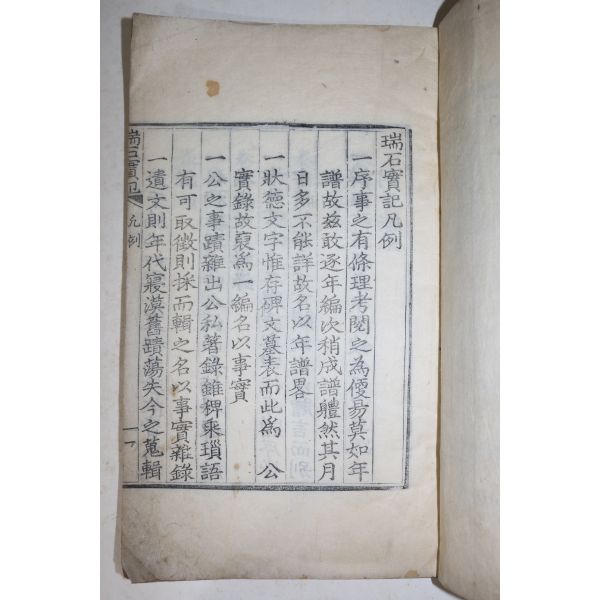 瑞石實記凡例
一序事之有條理考閱之為便昜莫如年
譜故玆敢逐年編次稍成譜軆然其月
日多不能詳故名以年譜畧
一狀德文字惟存碑文墓表而此為 公
實錄故裒為一編名以事實
一公之事蹟雜出公私著錄雖稗乘瑣語
有可取徵則採而輯之名以事實雜錄
一遺文則年代寢漠舊蹟蕩失今之蒐輯
瑞石實記 凡例 一